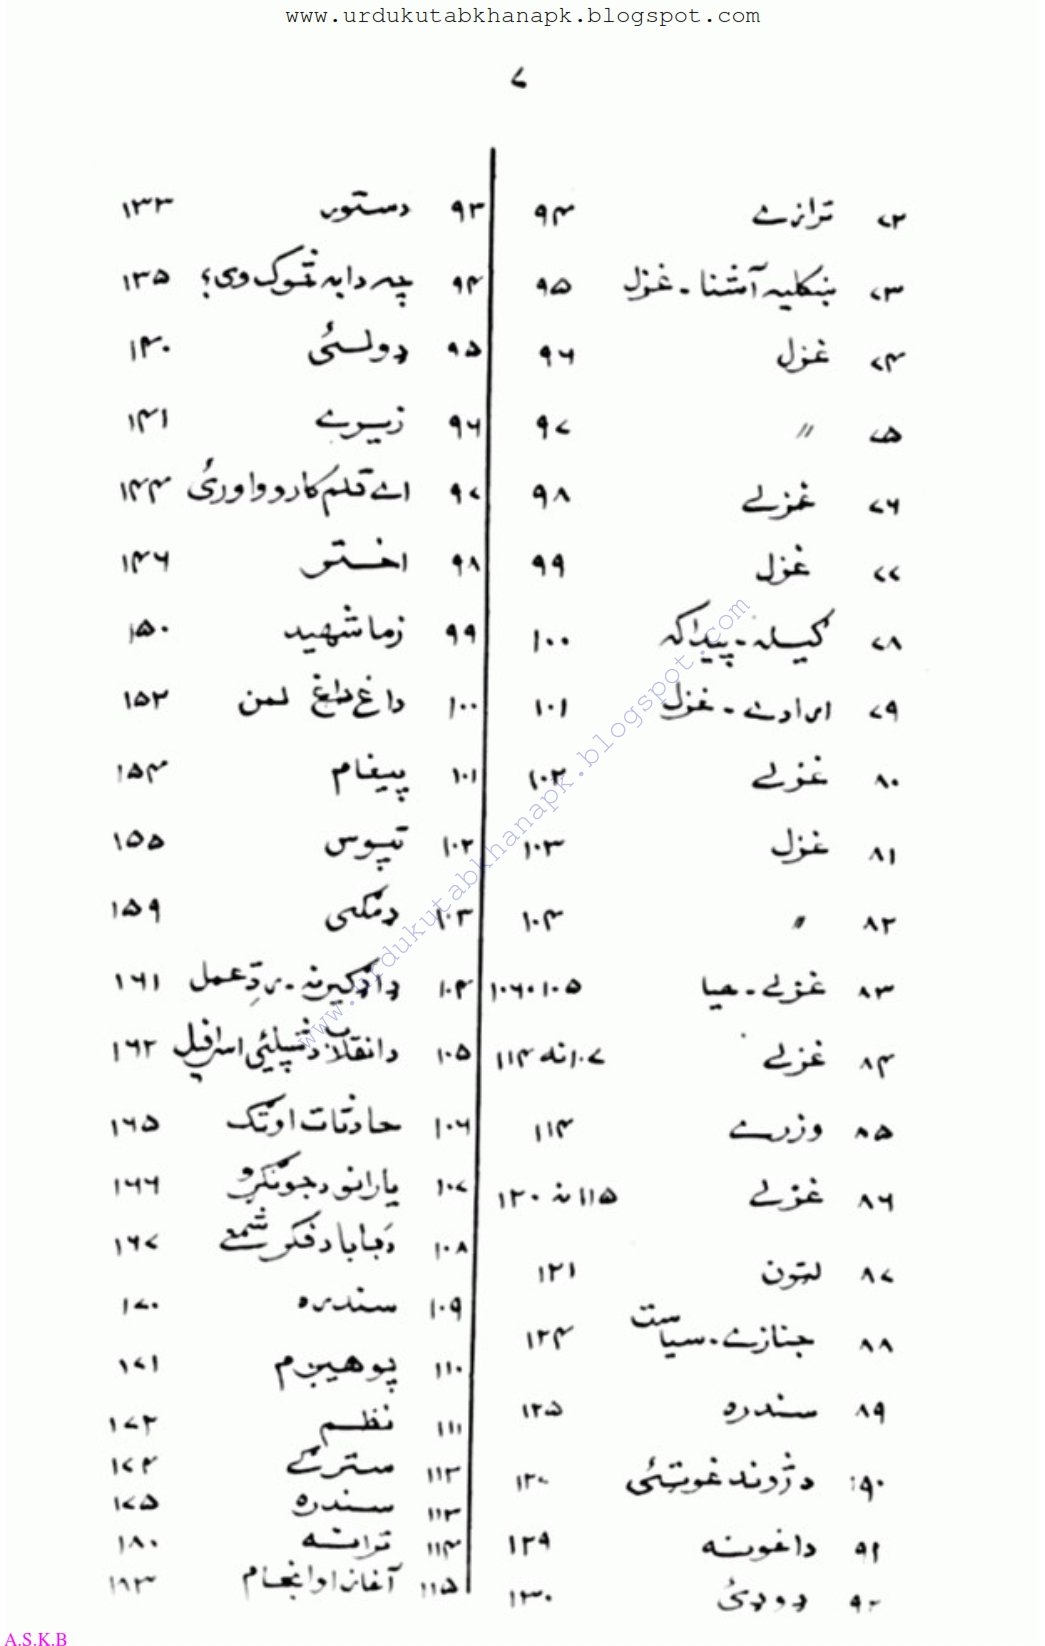 www.urdukutabkhanapk.blogspot.com
۷
۷۲ ترانے ۹۴
۷۳ ښکلیہ آشنا - غزل ۹۵
۷۴ غزل ۹۶
۷۵ " ۹۷
۷۶ غزلے ۹۸
۷۷ غزل ۹۹
۷۸ ګیلہ - پیداکہ ۱۰۰
۷۹ ارادے - غزل ۱۰۱
۸۰ غزلے ۱۰۲
۸۱ غزل ۱۰۳
۸۲ " ۱۰۴
۸۳ غزلے - حیا ۱۰۵، ۱۰۶
۸۴ غزلے ۱۰۷ نہ ۱۱۴
۸۵ وزرے ۱۱۴
۸۶ غزلے ۱۱۵ نہ ۱۲۰
۸۷ لټون ۱۲۱
۸۸ جنازے - سیاست ۱۲۴
۸۹ سندرہ ۱۲۵
۹۰ د ژوند غوټئی
۹۱ داغونہ ۱۲۹
۹۲ ډوډئ ۱۳۰
۹۳ دستور ۱۳۳
۹۴ چہ دا بہ څوک وی؟ ۱۳۵
۹۵ ډولئی ۱۴۰
۹۶ زیرے ۱۴۱
۹۷ اے قلم کارو واورئ ۱۴۴
۹۸ اختر ۱۴۶
۹۹ زما شهید ۱۵۰
۱۰۰ داغ داغ لمن ۱۵۲
۱۰۱ پیغام ۱۵۴
۱۰۲ تپوس ۱۵۵
۱۰۳ ۱۵۹
۱۰۴ ردِّ عمل ۱۶۱
۱۰۵ د انقلاب د شپیلئی اسرافیل ۱۶۲
۱۰۶ حادثات او ټک ۱۶۵
۱۰۷ یارانو ۱۶۶
۱۰۸ د بابا د فکر شمعے ۱۶۷
۱۰۹ سندرہ ۱۷۰
۱۱۰ پوهیږم ۱۷۱
۱۱۱ نظم ۱۷۲
۱۱۲ سترګے ۱۷۴
۱۱۳ سندرہ ۱۷۵
۱۱۴ ترانہ ۱۸۰
۱۱۵ آغاز او انجام ۱۸۳
www.urdukutabkhanapk.blogspot.com
A.S.K.B